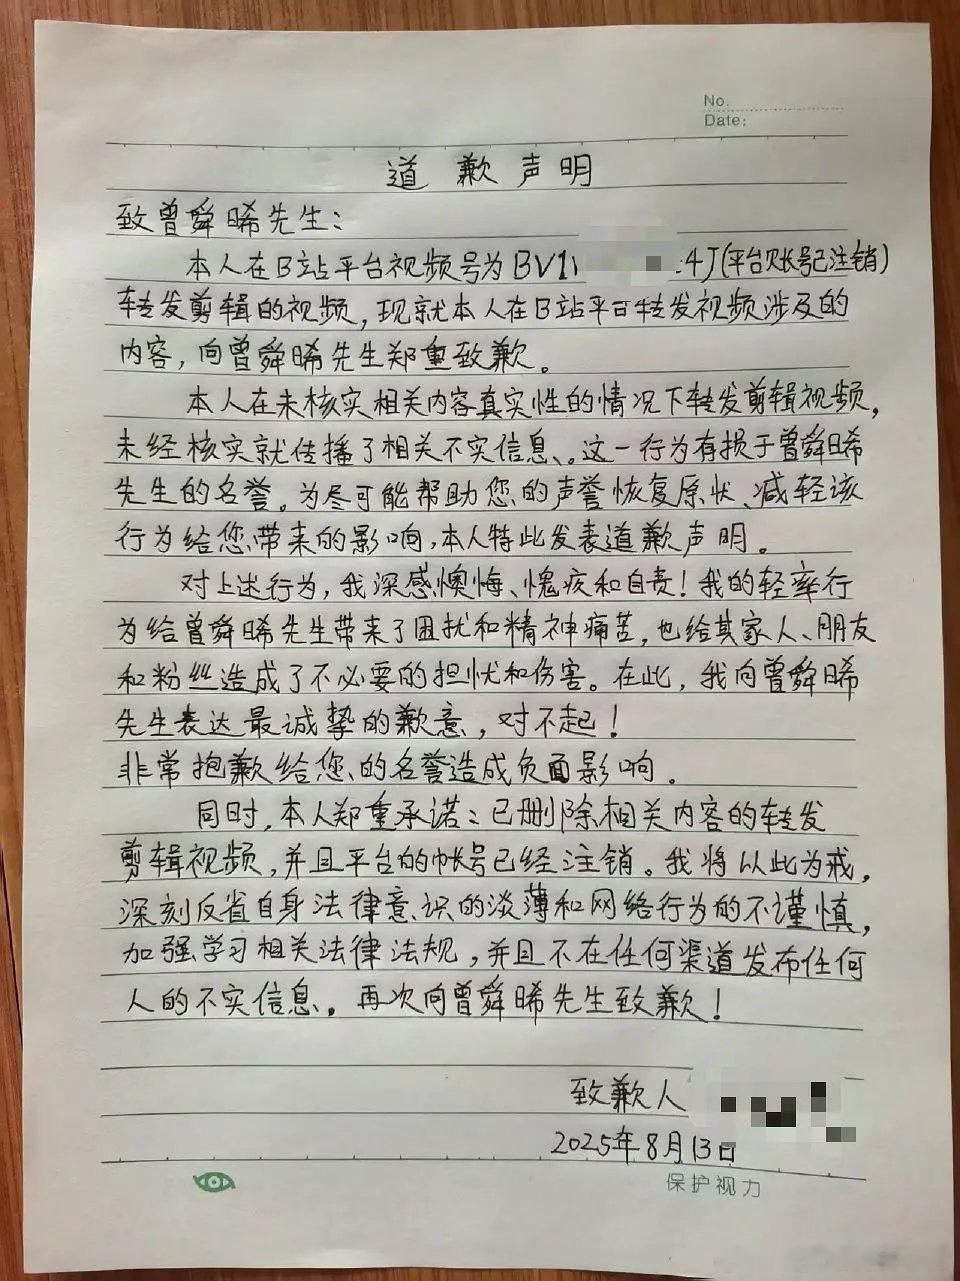 No.
Date:
道歉声明
致曾舜晞先生：
本人在B站平台视频号为BV1 4J(平台账号已注销)
转发剪辑的视频，现就本人在B站平台转发视频涉及的
内容，向曾舜晞先生郑重致歉。
本人在未核实相关内容真实性的情况下转发剪辑视频，
未经核实就传播了相关不实信息、。这一行为有损于曾舜晞
先生的名誉。为尽可能帮助您的声誉恢复原状、减轻该
行为给您带来的影响，本人特此发表道歉声明。
对上述行为，我深感懊悔、愧疚和自责！我的轻率行
为给曾舜晞先生带来了困扰和精神痛苦，也给其家人、朋友
和粉丝造成了不必要的担忧和伤害。在此，我向曾舜晞
先生表达最诚挚的歉意，对不起！
非常抱歉给您的名誉造成负面影响。
同时，本人郑重承诺：已删除相关内容的转发
剪辑视频，并且平台的帐号已经注销。我将以此为戒，
深刻反省自身法律意识的淡薄和网络行为的不谨慎，
加强学习相关法律法规，并且不在任何渠道发布任何
人的不实信息。再次向曾舜晞先生致歉！
致歉人
2025年8月13日
保护视力